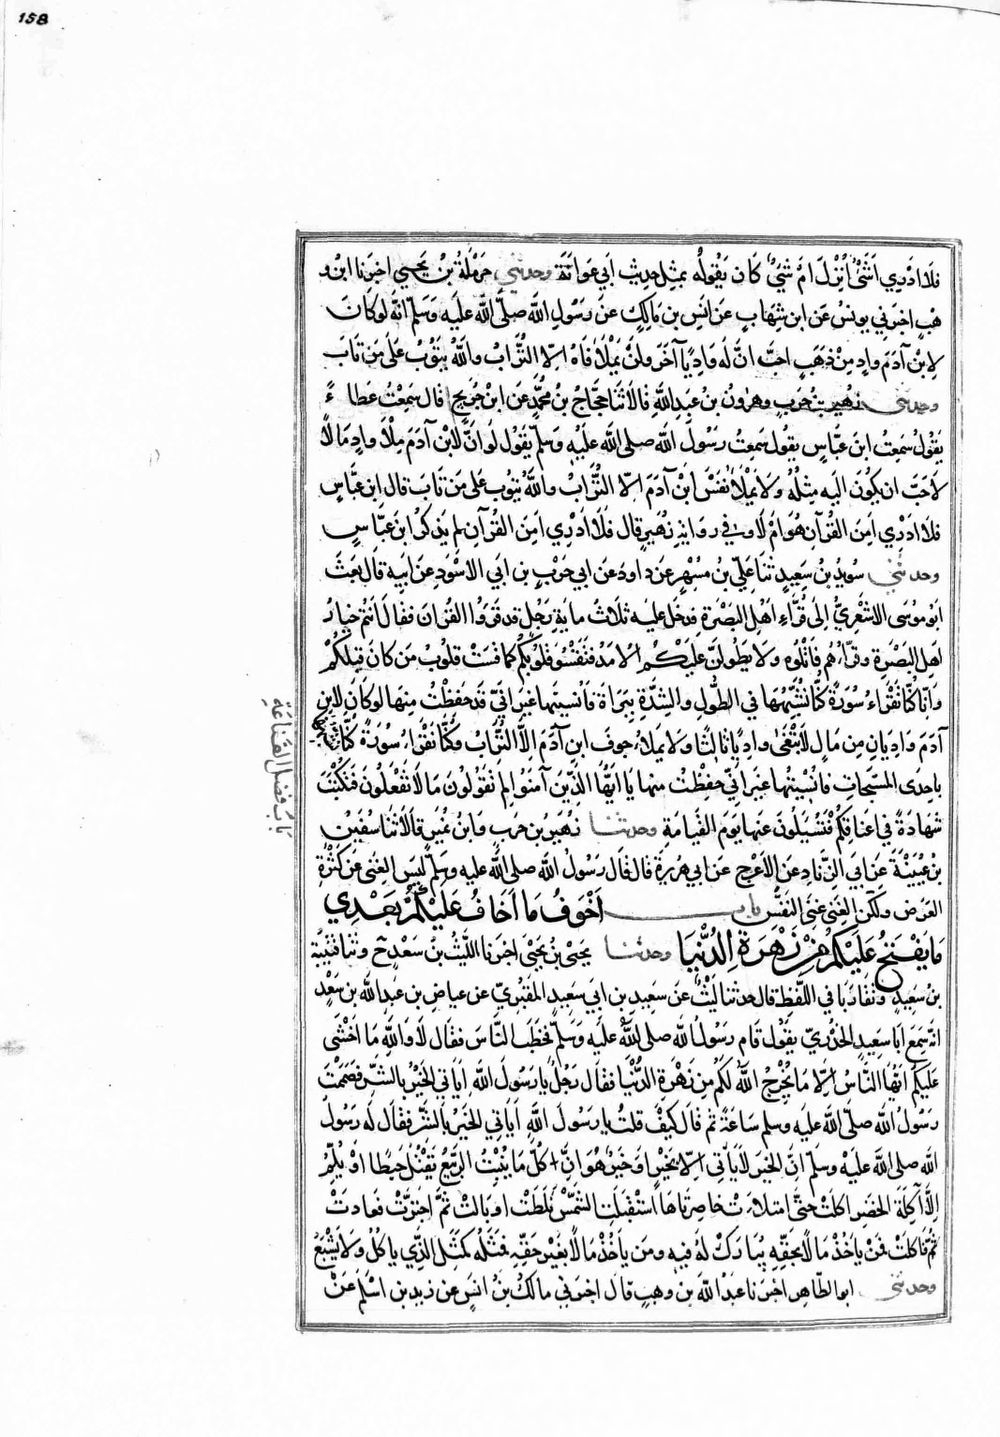 158
فلا ادري اشئ انزل ام شئ كان يقوله بمثل حديث ابي عوانة وحدثني حرملة بن يحيى اخبرنا ابن و
هب اخبرني يونس عن ابن شهاب عن انس بن مالك عن رسول الله صلى الله عليه وسلم انه لو كان
لابن آدم واد من ذهب احب ان له واديا آخر ولن يملأ فاه الا التراب والله يتوب على من تاب
وحدثني زهير بن حرب وهرون بن عبد الله قالا ثنا حجاج بن محمد عن ابن جريج قال سمعت عطاء
يقول سمعت ابن عباس يقول سمعت رسول الله صلى الله عليه وسلم يقول لو ان لابن آدم ملأ واد مالا
لاحب ان يكون اليه مثله ولا يملأ نفس ابن آدم الا التراب والله يتوب على من تاب قال ابن عباس
فلا ادري امن القرآن هو ام لا وفي رواية زهير قال فلا ادري امن القرآن لم يذكر ابن عباس
وحدثني سويد بن سعيد ثنا علي بن مسهر عن داود عن ابي حرب بن ابي الاسود عن ابيه قال بعث
ابو موسى الاشعري الى قراء اهل البصرة فدخل عليه ثلاث ماية رجل قد قروا القران فقال انتم خيار
اهل البصرة وقراءهم فاتلوه ولا يطولن عليكم الامد فتقسو قلوبكم كما قست قلوب من كان قبلكم
وانا كنا نقراء سورة كنا نشبهها في الطول والشدة ببراة فانسيتها غير اني قد حفظت منها لو كان لابن
آدم واديان من مال لابتغى واديا ثالثا ولا يملاء جوف ابن آدم الا التراب وكنا نقراء سورة كنا نشبهها
باحدى المسبحات فانسيتها غير اني حفظت منها يا ايها الذين آمنوا لم تقولون ما لا تفعلون فتكتب
شهادة في اعناقكم فتسيلون عنها يوم القيامة وحدثنا زهير بن حرب وابن نمير قالا ثنا سفين
بن عيينة عن ابي الزناد عن الاعرج عن ابي هريرة قال قال رسول الله صلى الله عليه وسلم ليس الغنى عن كثرة
العرض ولكن الغنى غنى النفس باب اخوف ما اخاف عليكم بعدي
ما يفتح عليكم من زهرة الدنيا وحدثنا يحيى بن يحيى اخبرنا الليث بن سعد ح وثنا قتيبة
بن سعيد وتقاربا في اللفظ قال حدثنا ليث عن سعيد بن ابي سعيد المقبري عن عياض بن عبد الله بن سعد
انه سمع ابا سعيد الخدري يقول قام رسول الله صلى الله عليه وسلم فخطب الناس فقال لا والله ما اخشى
عليكم ايها الناس الا ما يخرج الله لكم من زهرة الدنيا فقال رجل يا رسول الله اياتي الخير بالشر فصمت
رسول الله صلى الله عليه وسلم ساعة ثم قال كيف قلت يا رسول الله اياتي الخير بالشر فقال له رسول
الله صلى الله عليه وسلم ان الخير لا ياتي الا بخير او خير هو ان كل ما ينبت الربيع يقتل حبطا او يلم
الا آكلة الخضر اكلت حتى امتلات خاصرتاها استقبلت الشمس ثلطت او بالت ثم اجترت فعادت
ثم فاكلت فمن ياخذ مالا بحقه يبارك له فيه ومن ياخذ مالا بغير حقه فمثله كمثل الذي ياكل ولا يشبع
وحدثني ابو الطاهر اخبرنا عبد الله بن وهب قال اخبرني مالك بن انس عن زيد بن اسلم عن
باب فضل القناعة